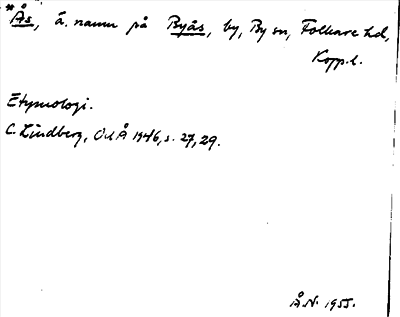 *Ås, ä. namn på Byås, by, By sn, Folkare hd,
Kopp.l.
Etymologi.
C. Lindberg, OdÅ 1946, s. 27, 29.
Å.N. 1955.